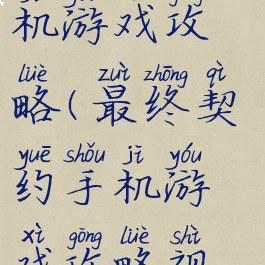 机游戏攻
lüè zuì zhōng qì
略(最终契
yuē shǒu jī yóu
约手机游
xì gōng lüè shì
戏攻略视